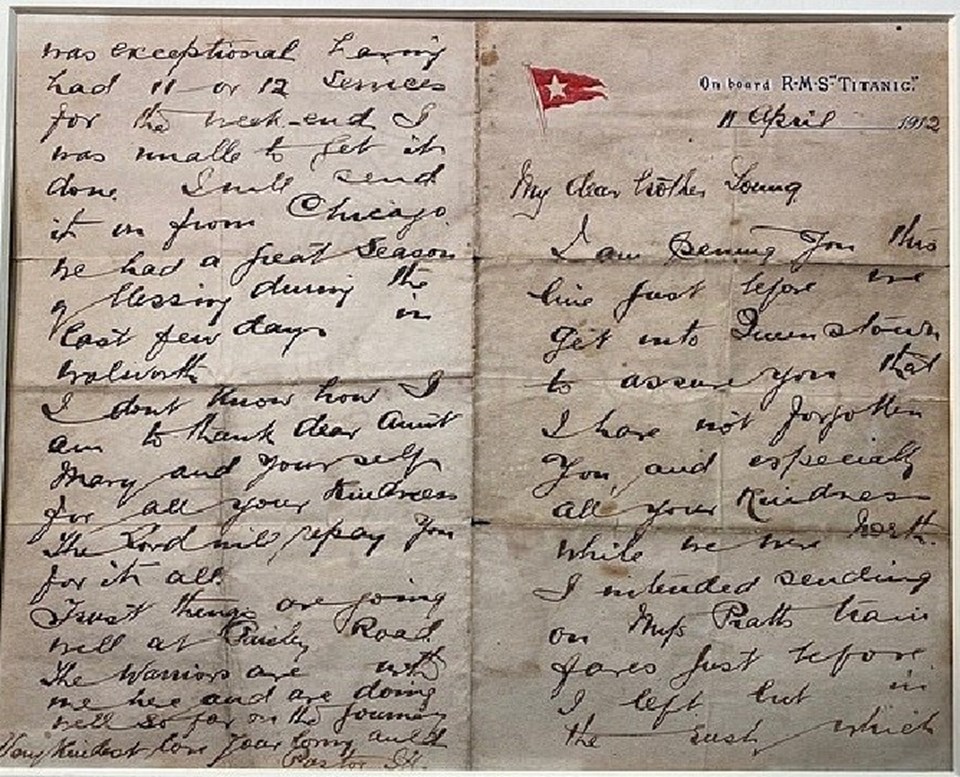 On board R·M·S· "TITANIC."
11 April 1912
My dear brother Young
I am penning you this
line just before we
get into Queenstown
to assure you that
I have not forgotten
you and especially
all your kindness
while we were North.
I intended sending
on Miss Pratts train
fares just before
I left but in
the rush which
was exceptional having
had 11 or 12 Services
for the week-end I
was unable to get it
done. I will send
it on from Chicago.
We had a great Season
of blessing during the
last few days in
Walworth
I dont know how I
am to thank dear Aunt
Mary and yourself
for all your kindness
The Lord will repay you
for it all.
Trust things are going
well at Paisley Road.
The Warriors are with
me here and are doing
well so far on the journey
Very kindest love Your loving auld
Pastor J.H.